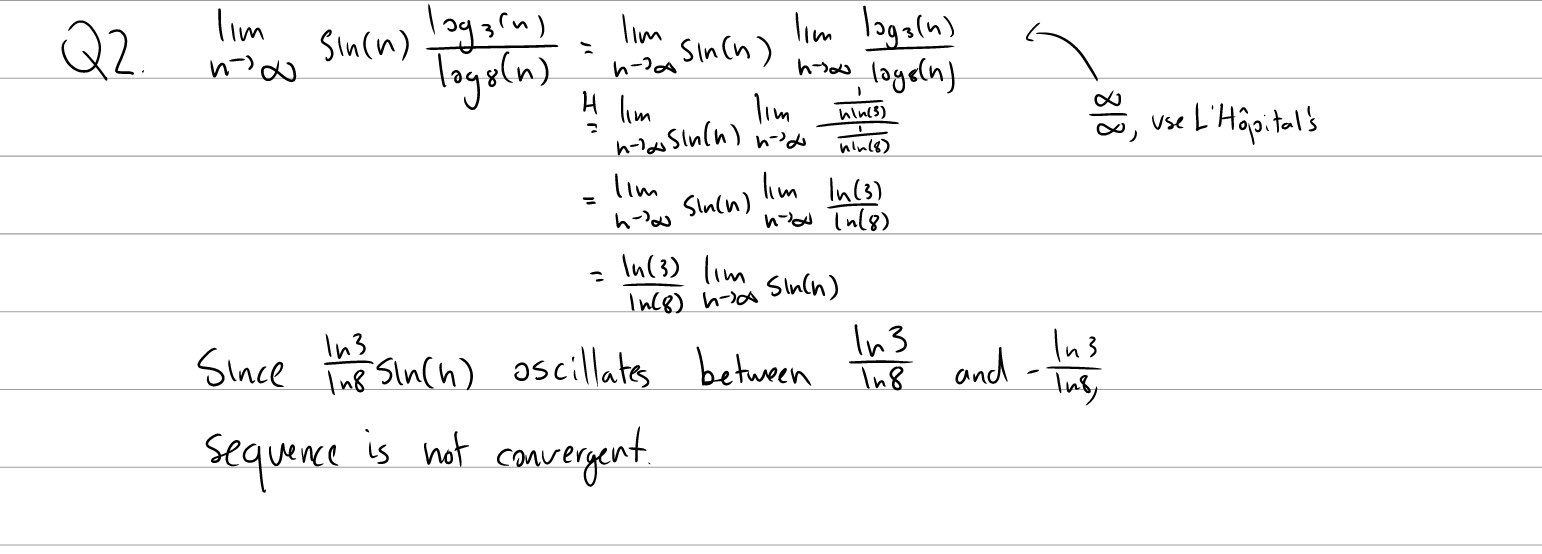 Q2. lim n→∞ sin(n) log₃(n)/log₈(n) = lim n→∞ sin(n) lim n→∞ log₃(n)/log₈(n)
∞/∞, use L'Hôpital's
H= lim n→∞ sin(n) lim n→∞ (1/(n ln(3)))/(1/(n ln(8)))
= lim n→∞ sin(n) lim n→∞ ln(3)/ln(8)
= ln(3)/ln(8) lim n→∞ sin(n)
Since ln3/ln8 sin(n) oscillates between ln3/ln8 and -ln3/ln8,
sequence is not convergent.